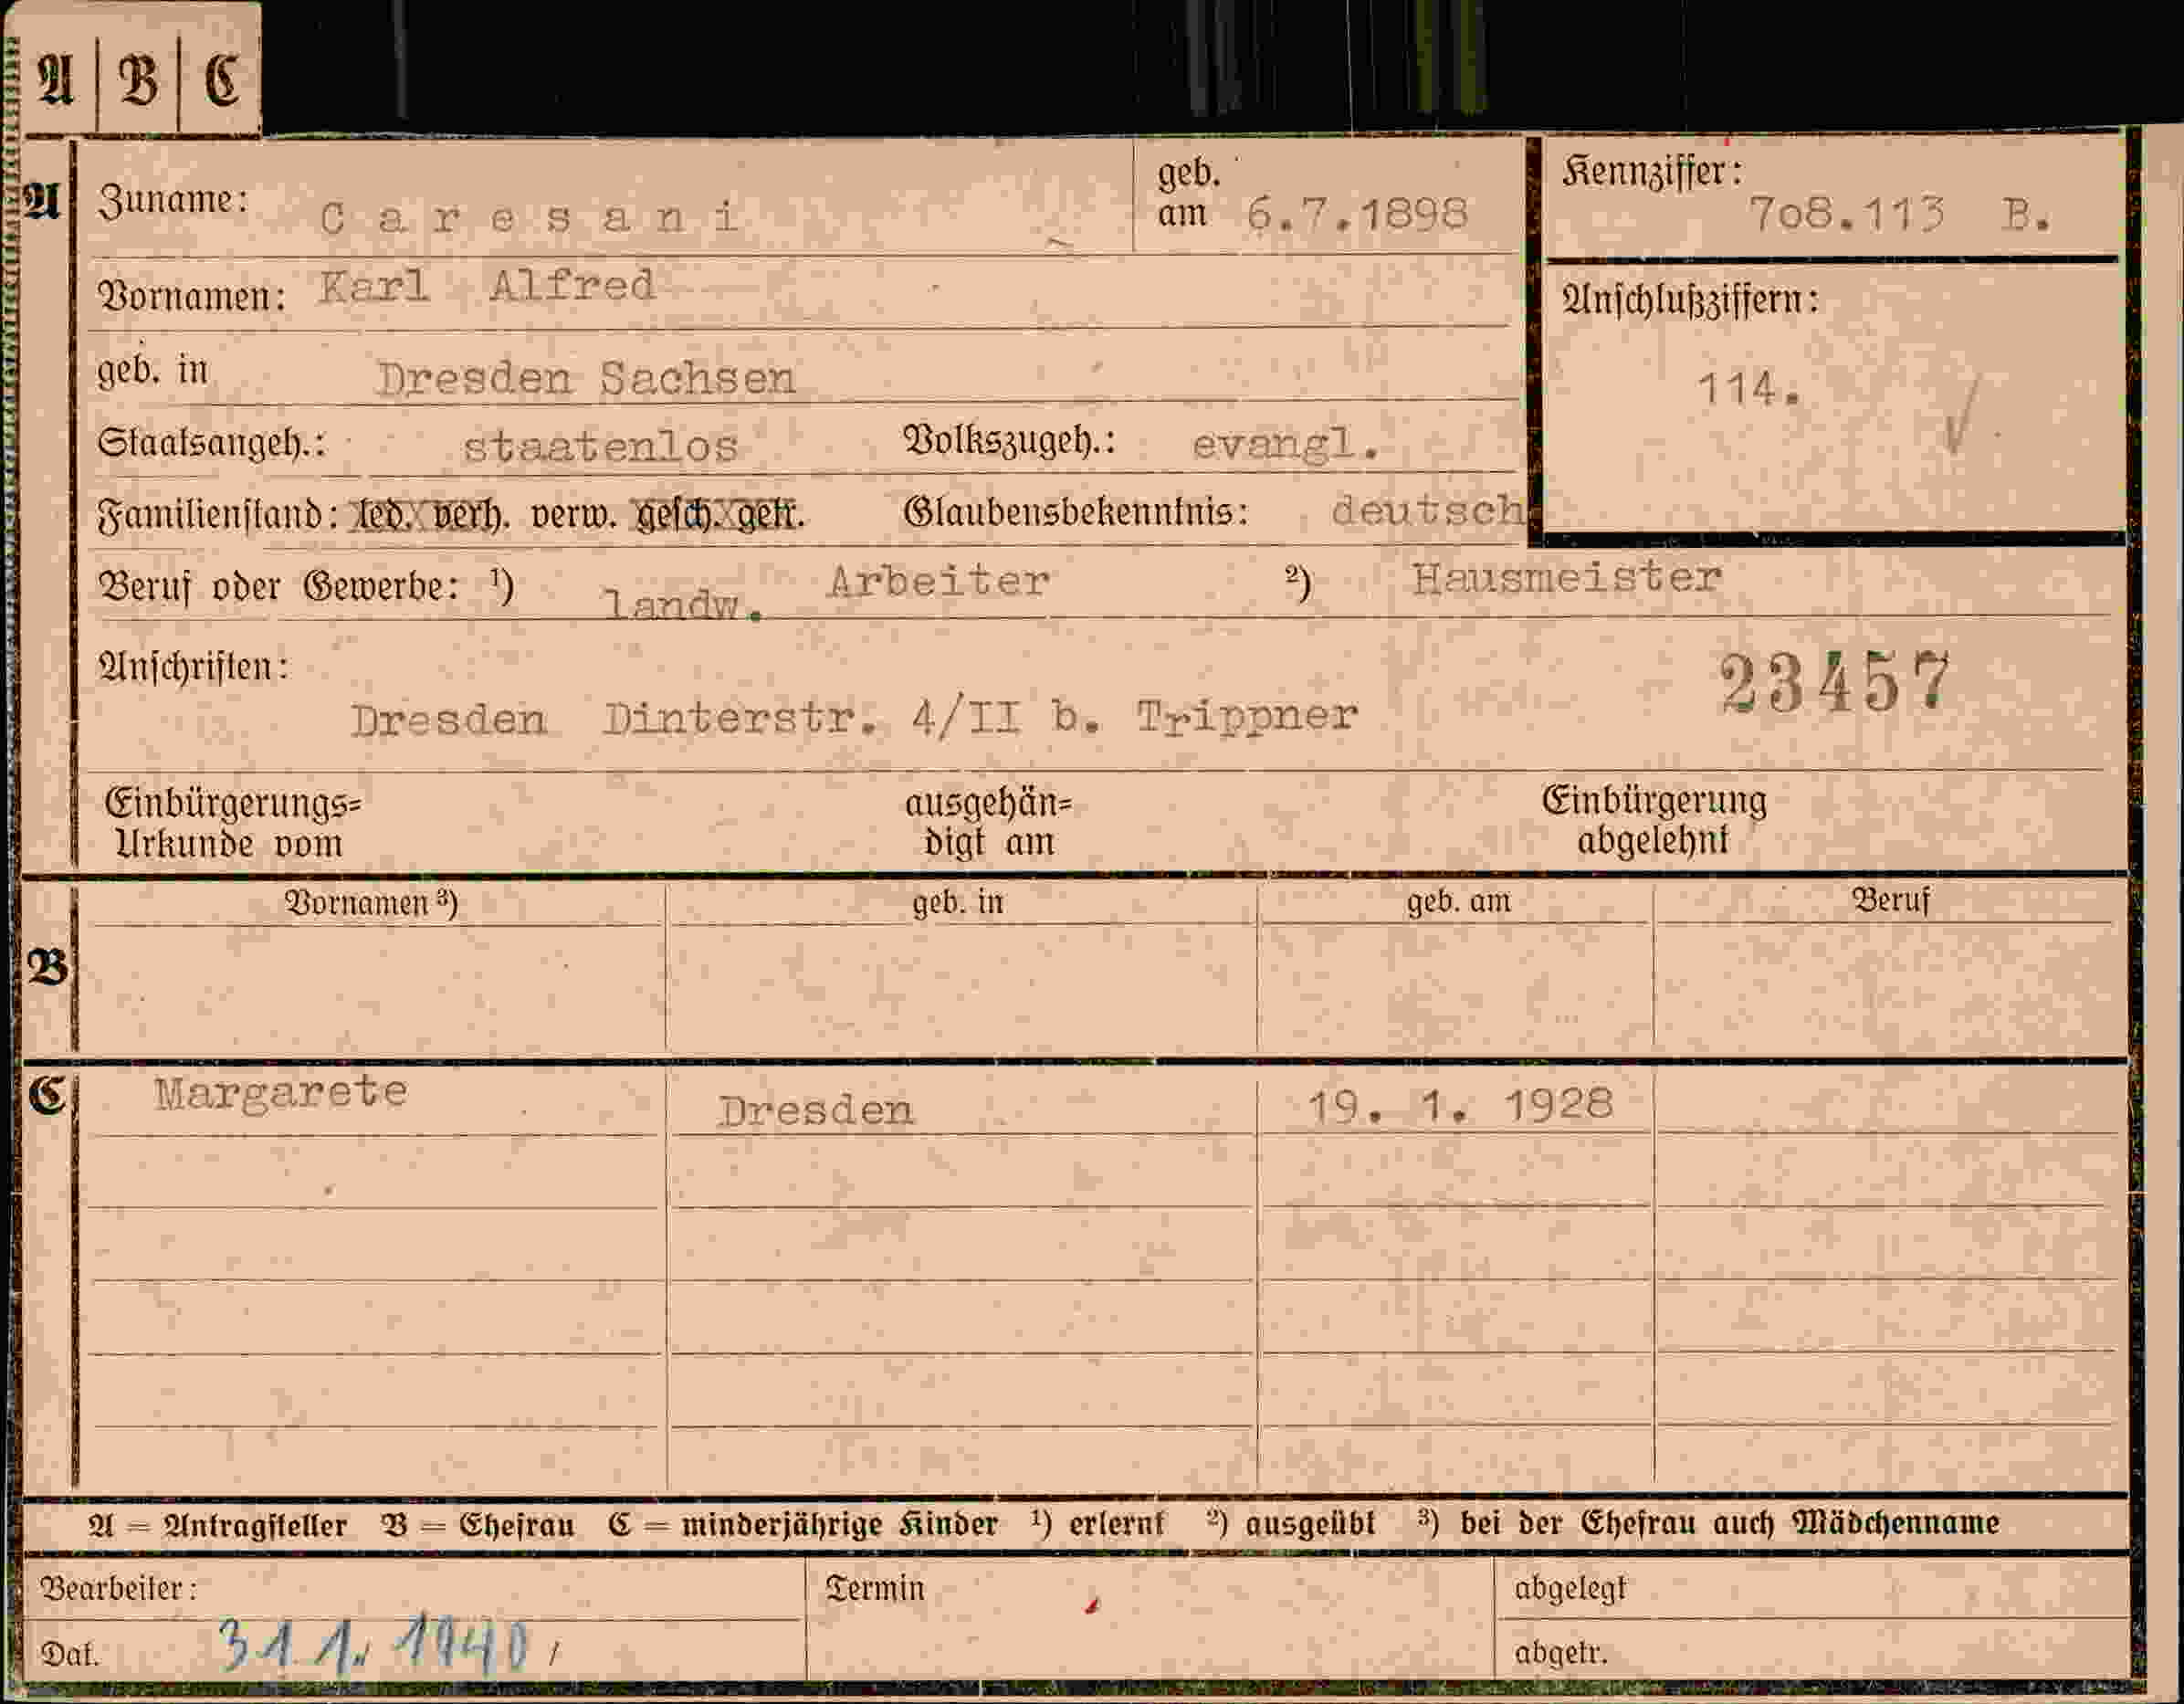 A | B | C
A Zuname: Caresani geb. am 6.7.1898 Kennziffer: 7o8.113 B.
Vornamen: Karl Alfred Anschlußziffern:
geb. in Dresden Sachsen 114.
Staatsangeh.: staatenlos Volkszugeh.: evangl.
Familienstand: led. verh. verw. gesch. getr. Glaubensbekenntnis: deutsch
Beruf oder Gewerbe: ¹) landw. Arbeiter ²) Hausmeister
Anschriften: 23457
Dresden Dinterstr. 4/II b. Trippner
Einbürgerungs= ausgehän= Einbürgerung
Urkunde vom digt am abgelehnt
Vornamen ³) geb. in geb. am Beruf
B
C Margarete Dresden 19. 1. 1928
A = Antragsteller B = Ehefrau C = minderjährige Kinder ¹) erlernt ²) ausgeübt ³) bei der Ehefrau auch Mädchenname
Bearbeiter: Termin abgelegt
Dat. 31.1.1940 abgetr.